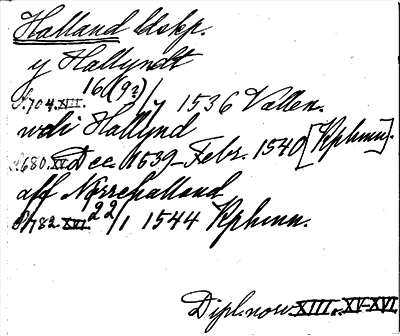 Halland ldskp.
y Hallyndt
s. 704. XIII. 16(19?)/7 1536 Vallen.
wdi Hallynd
s. 680. XV. Dec. 1539–Febr. 1540 [Kphmn].
aff Nørrehalland
s. 782. XVI. 22/1 1544 Kphmn.
Dipl. norv. XIII o. XV–XVI